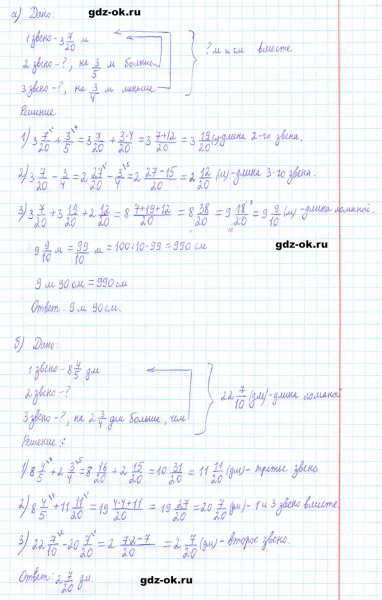 gdz-ok.ru
а) Дано:
1 звено - 3 7/20 м
2 звено - ?, на 3/5 м больше
3 звено - ?, на 3/4 м меньше
? м и см вместе
gdz-ok.ru
Решение
1) 3 7/20 + 3/5 = 3 7/20 + 3·4/20 = 3 7+12/20 = 3 19/20 (м) - длина 2-го звена.
2) 3 7/20 - 3/4 = 2 27/20 - 3/4 = 2 27-15/20 = 2 12/20 (м) - длина 3-го звена.
3) 3 7/20 + 3 19/20 + 2 12/20 = 8 7+19+12/20 = 8 38/20 = 9 18/20 = 9 9/10 (м) - длина ломаной.
9 9/10 м = 99/10 м = 100:10·99 = 990 см
gdz-ok.ru
9 м 90 см = 990 см
Ответ: 9 м 90 см.
б) Дано:
1 звено - 8 4/5 дм
2 звено - ?
3 звено - ?, на 2 3/4 дм больше, чем
22 7/10 (дм) - длина ломаной
gdz-ok.ru
Решение:
1) 8 4/5 + 2 3/4 = 8 16/20 + 2 15/20 = 10 31/20 = 11 11/20 (дм) - третье звено
2) 8 4/5 + 11 11/20 = 19 4·4+11/20 = 19 27/20 = 20 7/20 (дм) - 1 и 3 звено вместе.
3) 22 7/10 - 20 7/20 = 2 7·2-7/20 = 2 7/20 (дм) - второе звено.
Ответ: 2 7/20 дм.
gdz-ok.ru